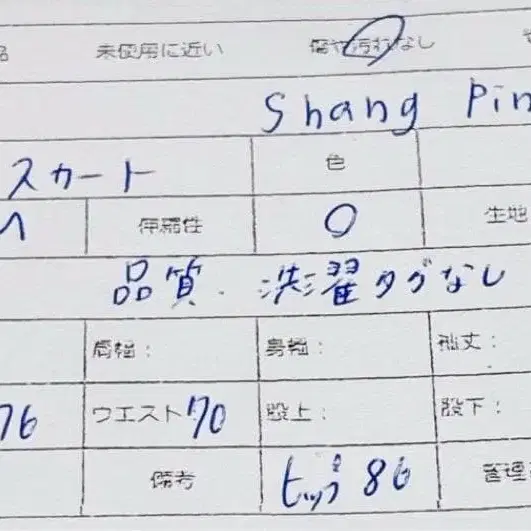 未使用に近い 傷や汚れなし
Shang Pin
スカート 色
伸縮性 〇 生地
品質・洗濯タグなし
肩幅： 身幅： 袖丈：
76 ウエスト 70 股上： 股下：
備考 ヒップ 86 管理